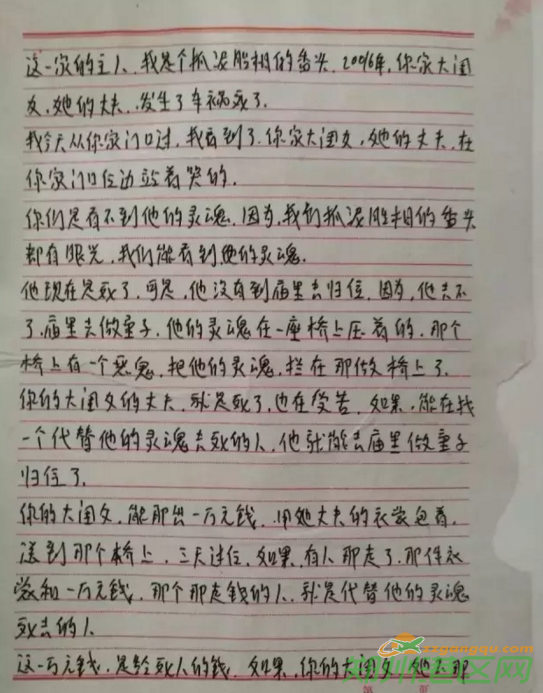 这一家的主人，我是个抓泥胎相的香头，2006年，你家大闺
女，她的丈夫，发生了车祸死了．
我今天从你家门口过，我看到了．你家大闺女，她的丈夫，在
你家门口位边站着哭的．
你们是看不到他的灵魂．因为，我们抓泥胎相的香头
都有眼光，我们能看到他的灵魂．
他现在是死了，可是，他没有到庙里去归位．因为，他去不
了，庙里去做童子，他的灵魂在一座桥上压着的．那个
桥上有一个恶鬼，把他的灵魂，拦在那做桥上了．
你的大闺女的丈夫，就是死了，也在受苦．如果，能在找
一个代替他的灵魂去死的人．他就能去庙里做童子
归位了．
你的大闺女，能那出一万元钱．用她丈夫的衣裳包着．
送到那个桥上，三天过位，如果，有人那走了．那件衣
裳和一万元钱，那个那走钱的人．就是代替他的灵魂
死去的人
这一万元钱，是给死人的钱．如果，你的大闺女，她不那
zzgongqu.com